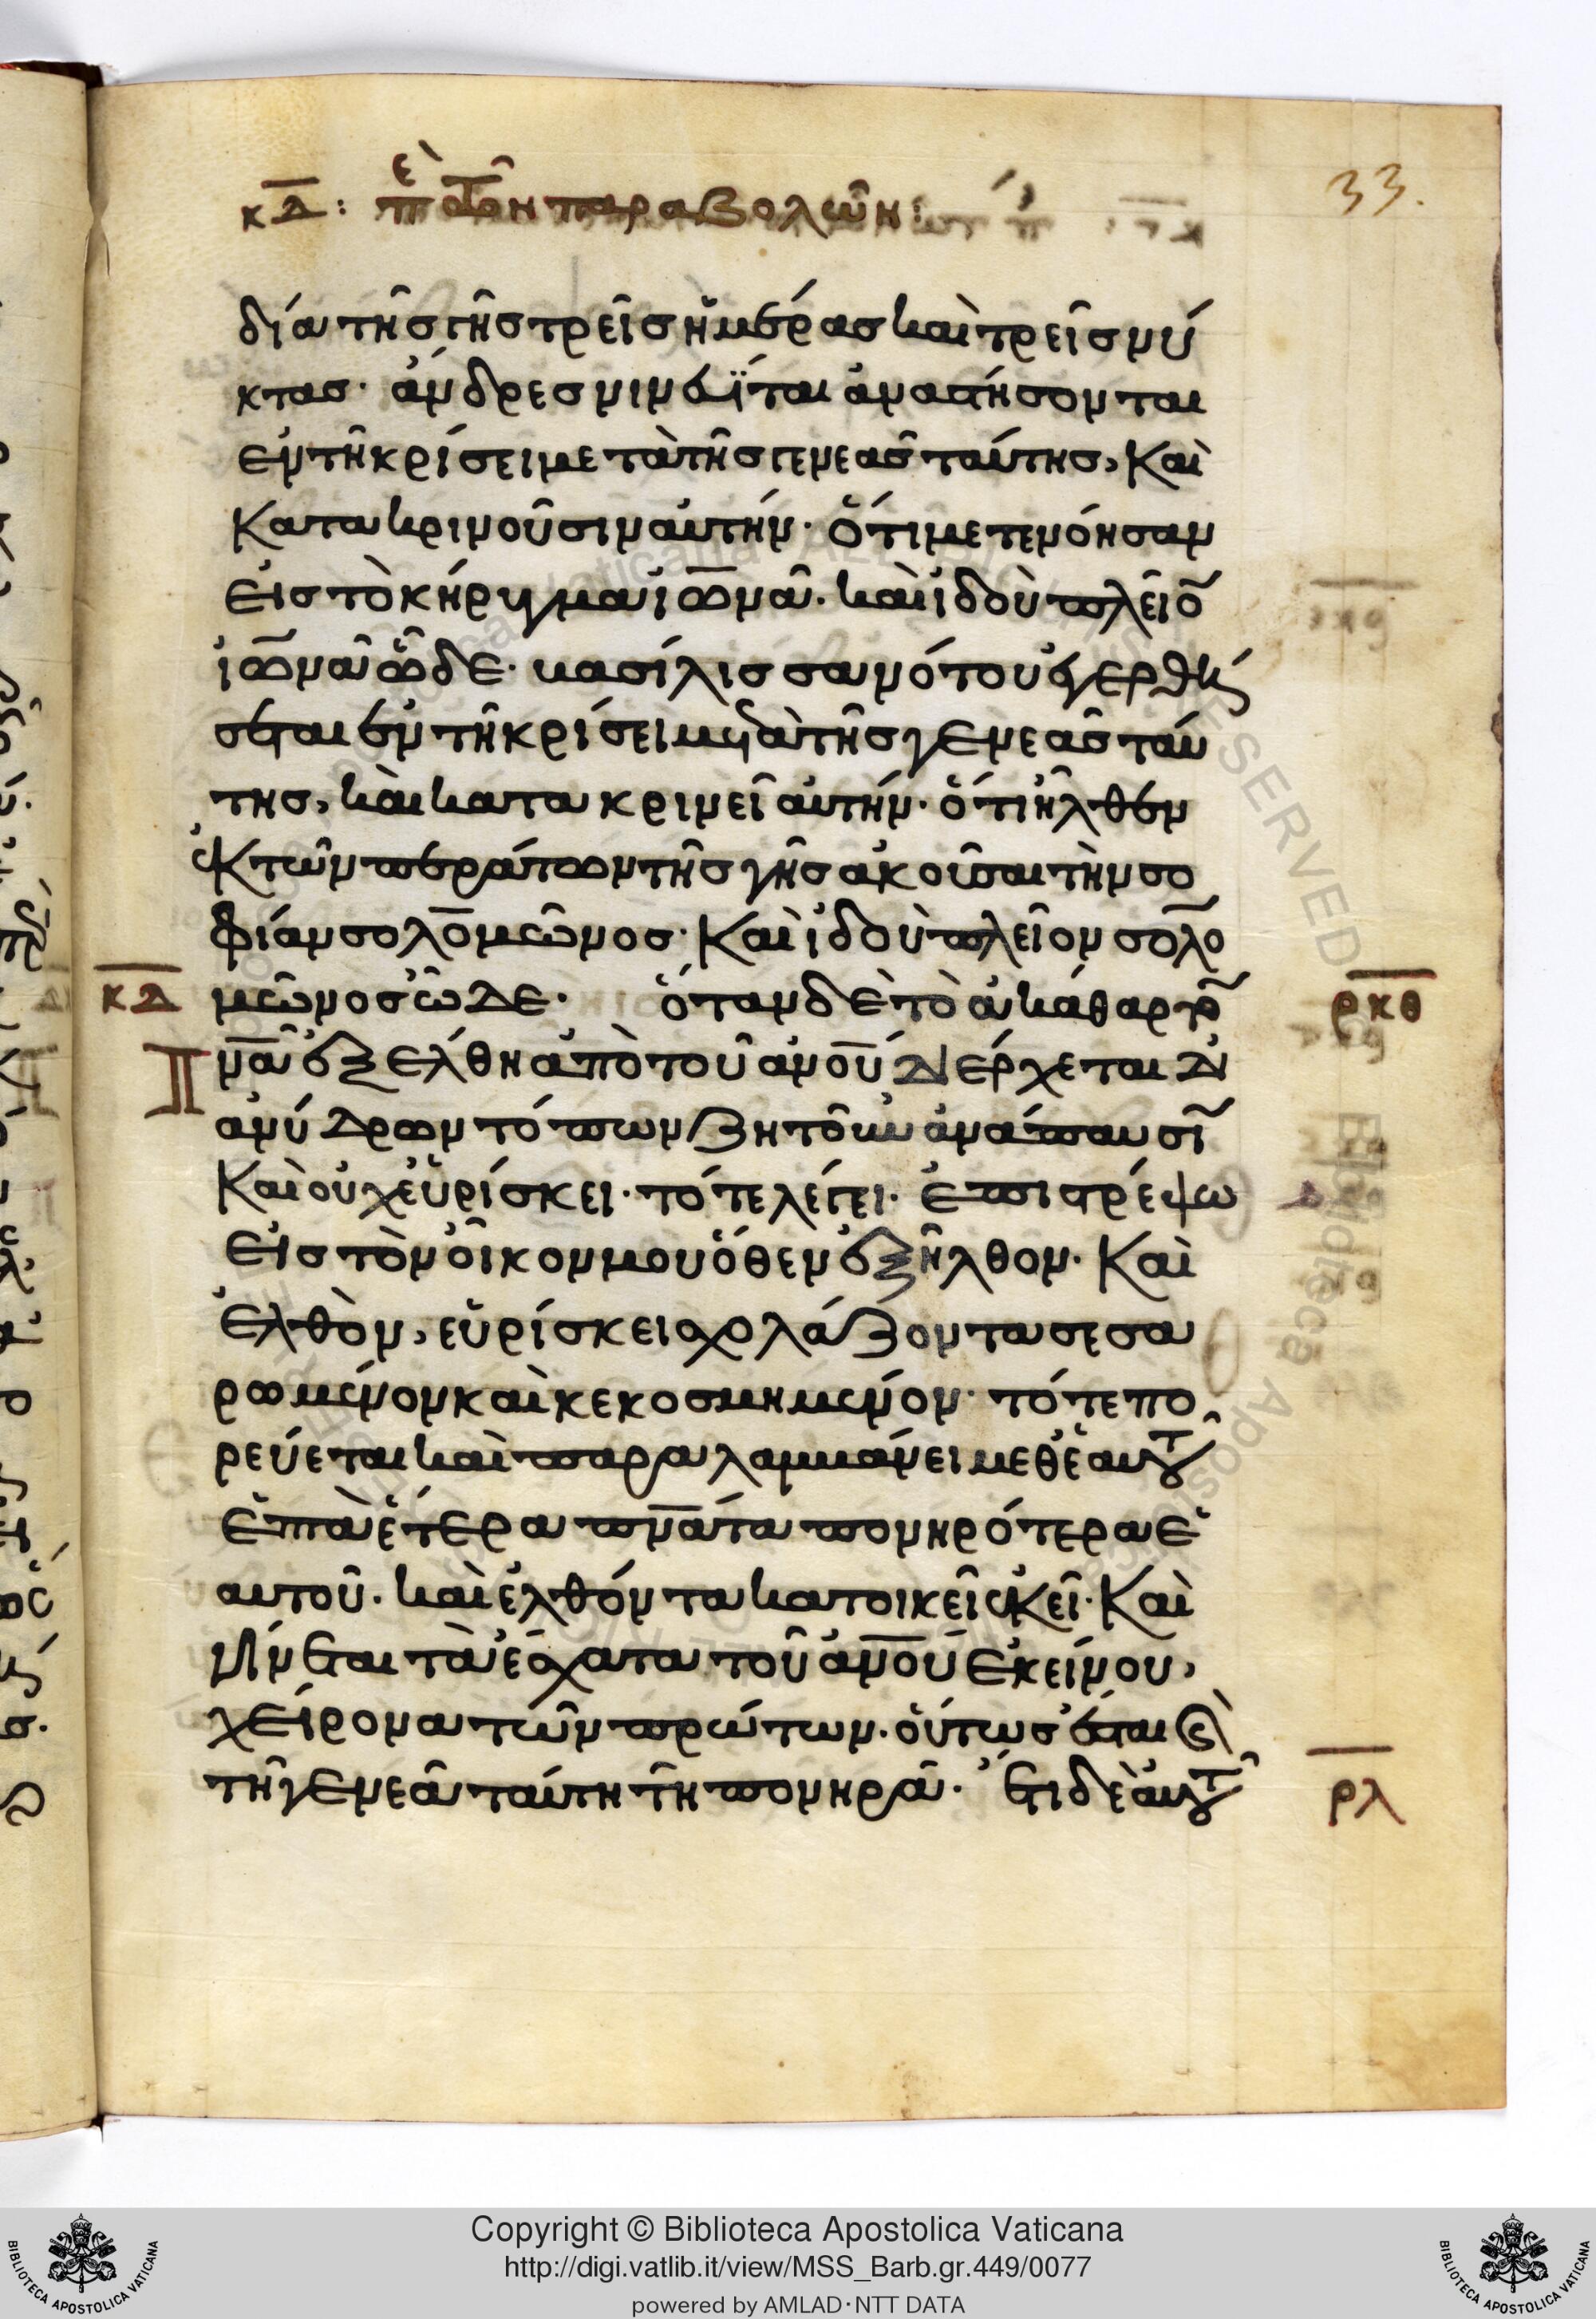 κδ: πε τῶν παραβολῶν:
33.
δία τῆς γῆς τρεῖς ἡμέρας καὶ τρεῖς νύ
κτας· ἄνδρες νινευῖται ἀναστήσονται
ἐν τῆ κρίσει μετὰ τῆς γενεᾶς ταύτης, καὶ
κατακρινοῦσιν αὐτήν· ὅτι μετενόησαν
εἰς τὸ κήρυγμα ἰωνᾶ. καὶ ἰδοὺ πλεῖο̅
ἰωνᾶ ὧδε· βασίλισσα νότου ἐγερθή
σεται ἐν τῆ κρίσει μετὰ τῆς γενεᾶς ταύ
της, καὶ κατακρινεῖ αὐτήν· ὅτι ἦλθεν
ἐκ τῶν περάτων τῆς γῆς ἀκοῦσαι τὴν σο
φίαν σολομῶνος· καὶ ἰδοὺ πλεῖον σολο
κδ μῶνος ὧδε· ὅταν δὲ τὸ ἀκάθαρτο̅ ρκθ
π̅ν̅α̅ ἐξέλθη ἀπὸ τοῦ α̅ν̅ο̅υ̅ διέρχεται δι
ἀνύδρων τόπων ζητοῦν ἀνάπαυσι̅
καὶ οὐχ εὑρίσκει· τότε λέγει· ἐπιστρέψω
εἰς τὸν οἶκον μου ὅθεν ἐξῆλθον· καὶ
ἐλθὸν, εὑρίσκει σχολάζοντα σεσα
ρωμένον καὶ κεκοσμημένον· τότε πο
ρεύεται καὶ παραλαμβάνει μεθ ἑαυτοῦ
ἑπτὰ ἕτερα π̅ν̅α̅τα πονηρότερα ἑ
αυτοῦ. καὶ ἐλθόντα κατοικεῖ ἐκεῖ· καὶ
γίνεται τὰ ἔσχατα τοῦ α̅ν̅ο̅υ̅ ἐκείνου,
χείρονα τῶν πρώτων· οὕτως ἔσται καὶ
τῆ γενεᾶ ταύτη τῆ πονηρᾶ· ἔτι δὲ αὐτοῦ ρλ
Copyright © Biblioteca Apostolica Vaticana
http://digi.vatlib.it/view/MSS_Barb.gr.449/0077
powered by AMLAD·NTT DATA
BIBLIOTECA APOSTOLICA VATICANA
BIBLIOTECA APOSTOLICA VATICANA